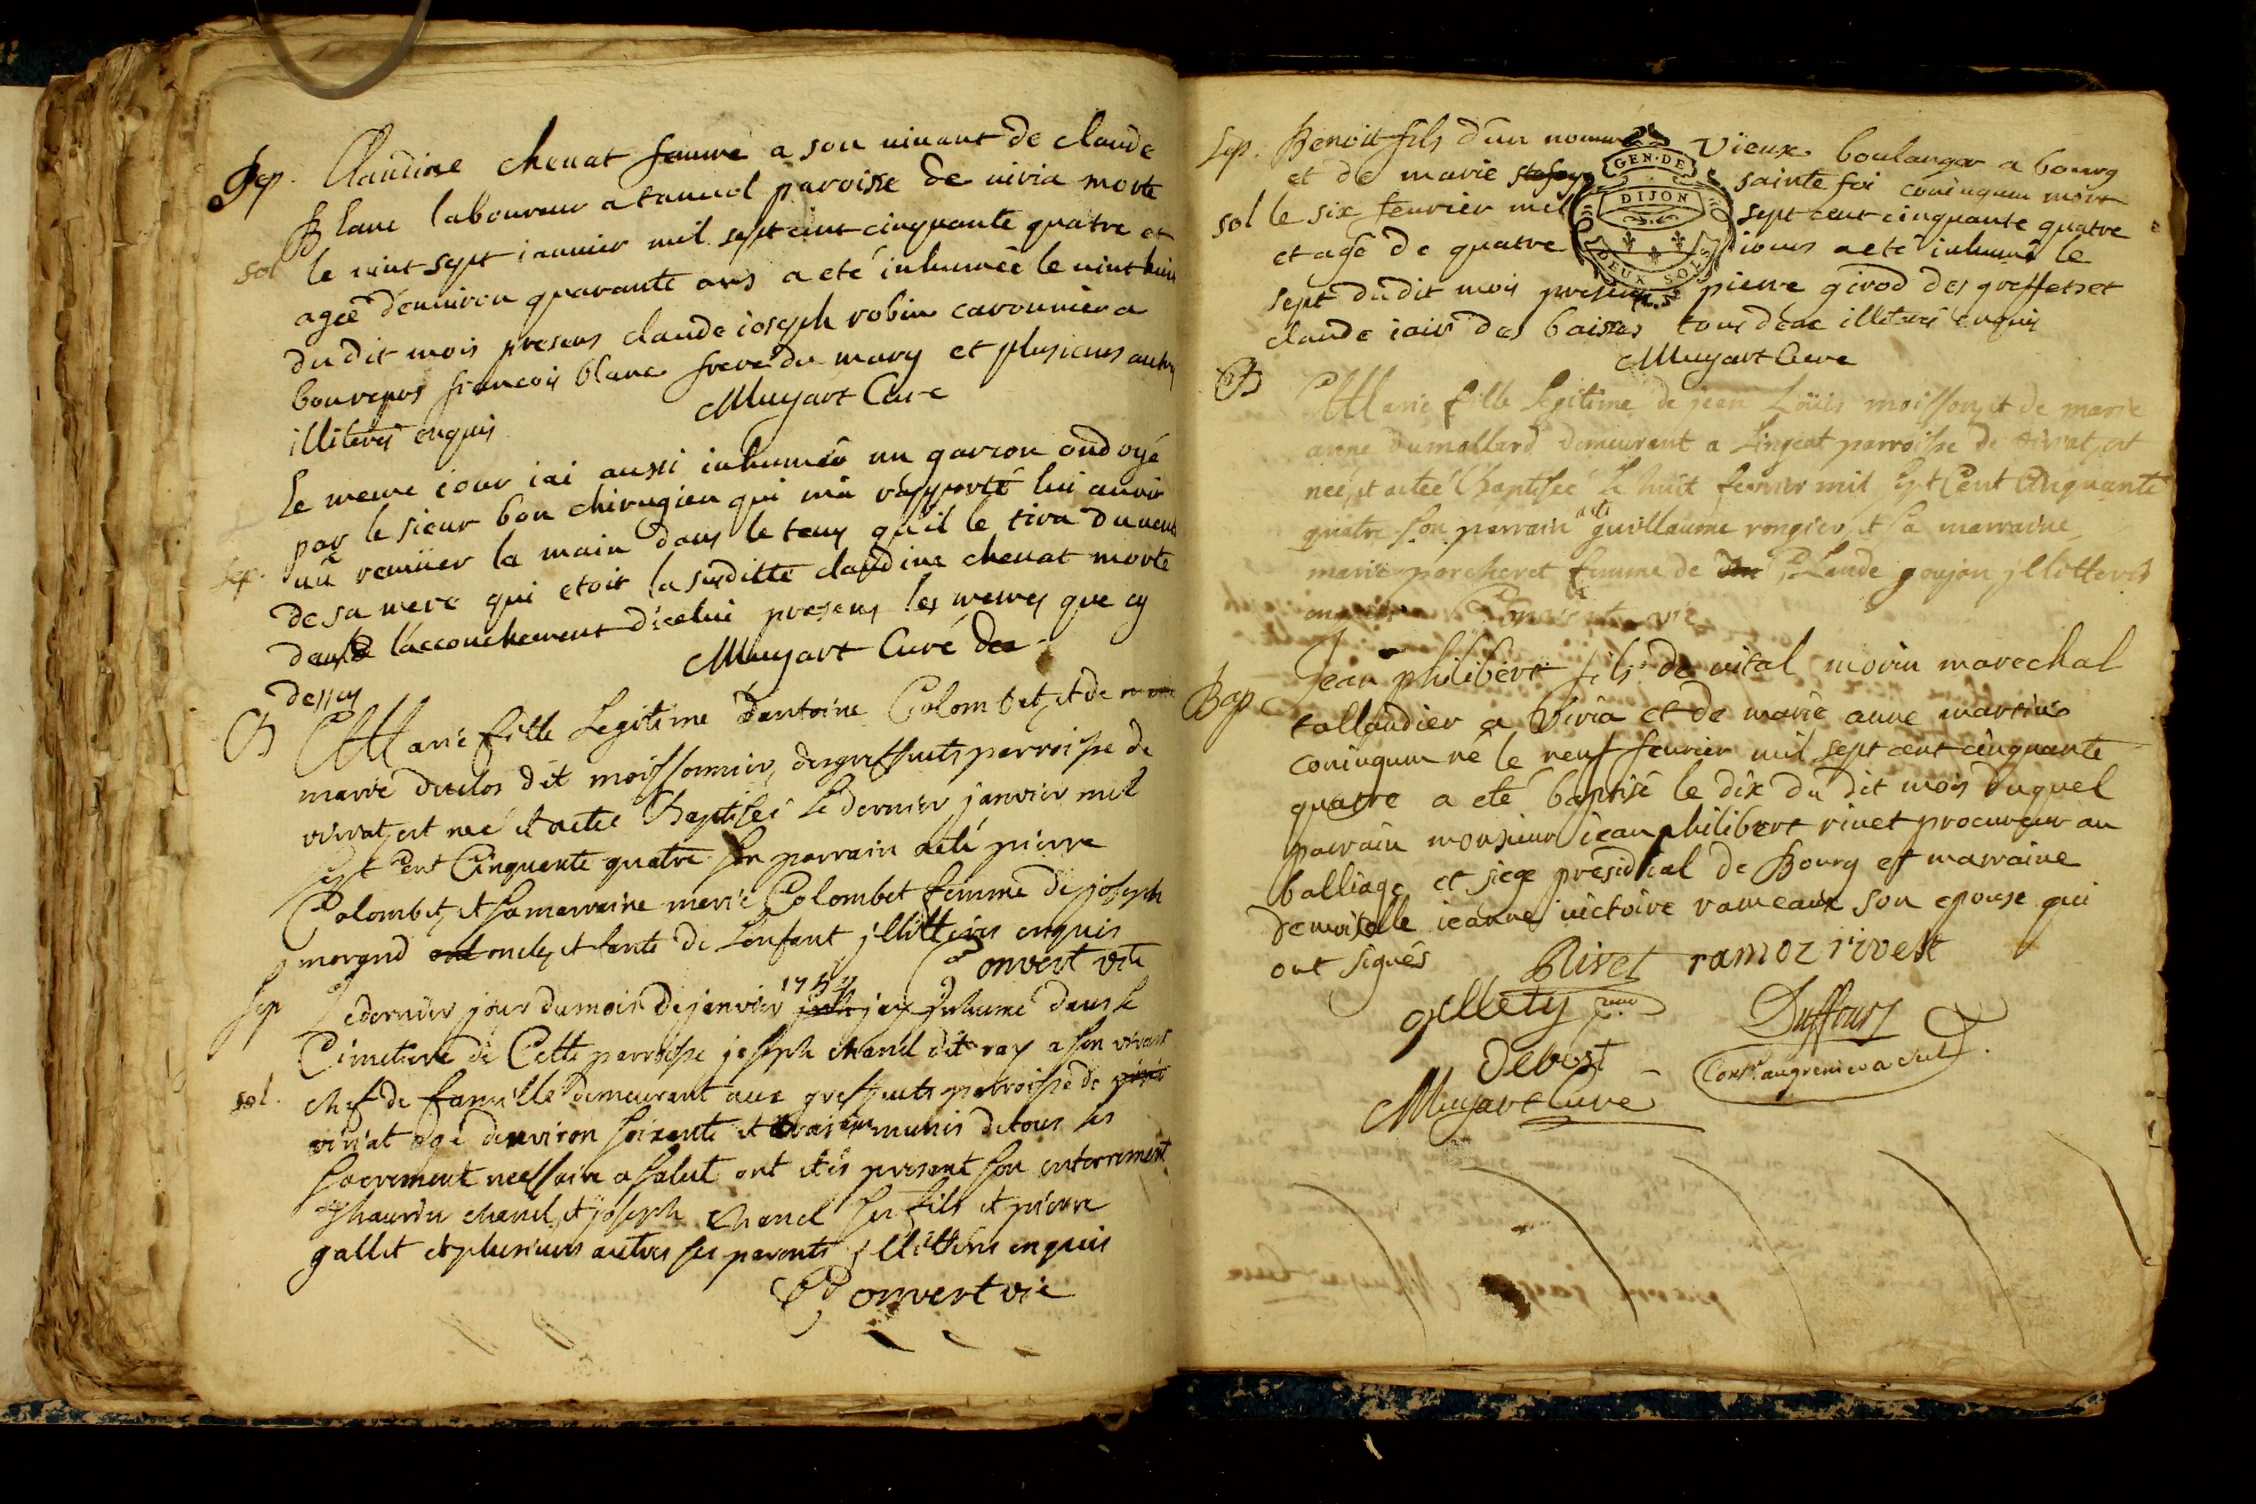 Sep. Claudine chenat femme a son uiuant de claude
Blanc laboureur a tanuol paroisse de uiria morte
sol le uint sept ianuier mil sept cent cinquante quatre et
agée denuiron quarante ans a eté inhumée le uint huit
du dit mois presens claude ioseph robin caronnier a
bourepos francois blanc frere du mary et plusieurs autres
illiterés enquis Muyart Curé
le meme iour iai aussi inhumé un garcon ondoyé
par le sieur bon chirugien qui ma rapporté lui auoir
Sep. uû remüer la main dans le tems qu'il le tira du uentre
de sa mere qui etoit la susditte claudine chenat morte
dans l'accouchement d'icelui presens les memes que cy
dessus Muyart Curé
B Marie fille Legitime dantoine Colombet, et de
marie duclos dit moissonnier, des greffuets parroisse de
viriat, est neé et aeteé Baptiseé le dernier janvier mil
sept Cent Cinquante quatre son parrain aeté pierre
Colombet, et sa marraine marie Colombet femme de joseph
morand oncle, et tante de Lenfant jllitteris enquis
Convert vic
Sep Le dernier jour du mois de janvier 1754 jay Inhumé dans le
Cimetiere de Cette parroisse joseph chanel dit ray a son vivant
sol. chef de famille demeurant aux greffuets parroisse de
viriat agé denviron soixante et trois ans munis de tous les
sacrement necessaire a salut ont étés present son enterrement
chanel, et joseph chanel ses fils et pierre
gallet et plusieurs autres ses parents jllitteris enquis
Convert vic
Sep. Benoit fils d'un nommé Vieux boulanger a bourg
et de marie sainte foi coniugum mort
sol le six feurier mil sept cent cinquante quatre
et agé de quatre iours a eté inhumé le
sept du dit mois presens pierre girod des greffets et
claude iair des baisses tous deux illiterés enquis
Muyart Curé
GEN·DE
DIJON
DEUX SOLS
B Marie fille Legitime de jean Loüis moisson, et de marie
anne Dumollard demeurant a Lingeat parroisse de viriat, est
neé, et aeteé Baptiseé le huit fevrier mil sept Cent Cinquante
quatre son parrain aeté guillaume rongier, et sa marraine
marie porcheret femme de Claude goujon jllitteris
enquis Convert vic
Bap Jean philibert fils de vital morin marechal
tallandier a Viria et de marie anne martine
coniugum né le neuf feurier mil sept cent cinquante
quatre a eté baptisé le dix du dit mois duquel
parrain monsieur iean philibert riuet procureur au
balliage et siege presidial de Bourg et marraine
demoiselle ieanne uictoire rameaux son epouse qui
ont signés Rivet ramoz rivest
Duffour
Debost
Consr. au grenier a sel
Muyart Curé